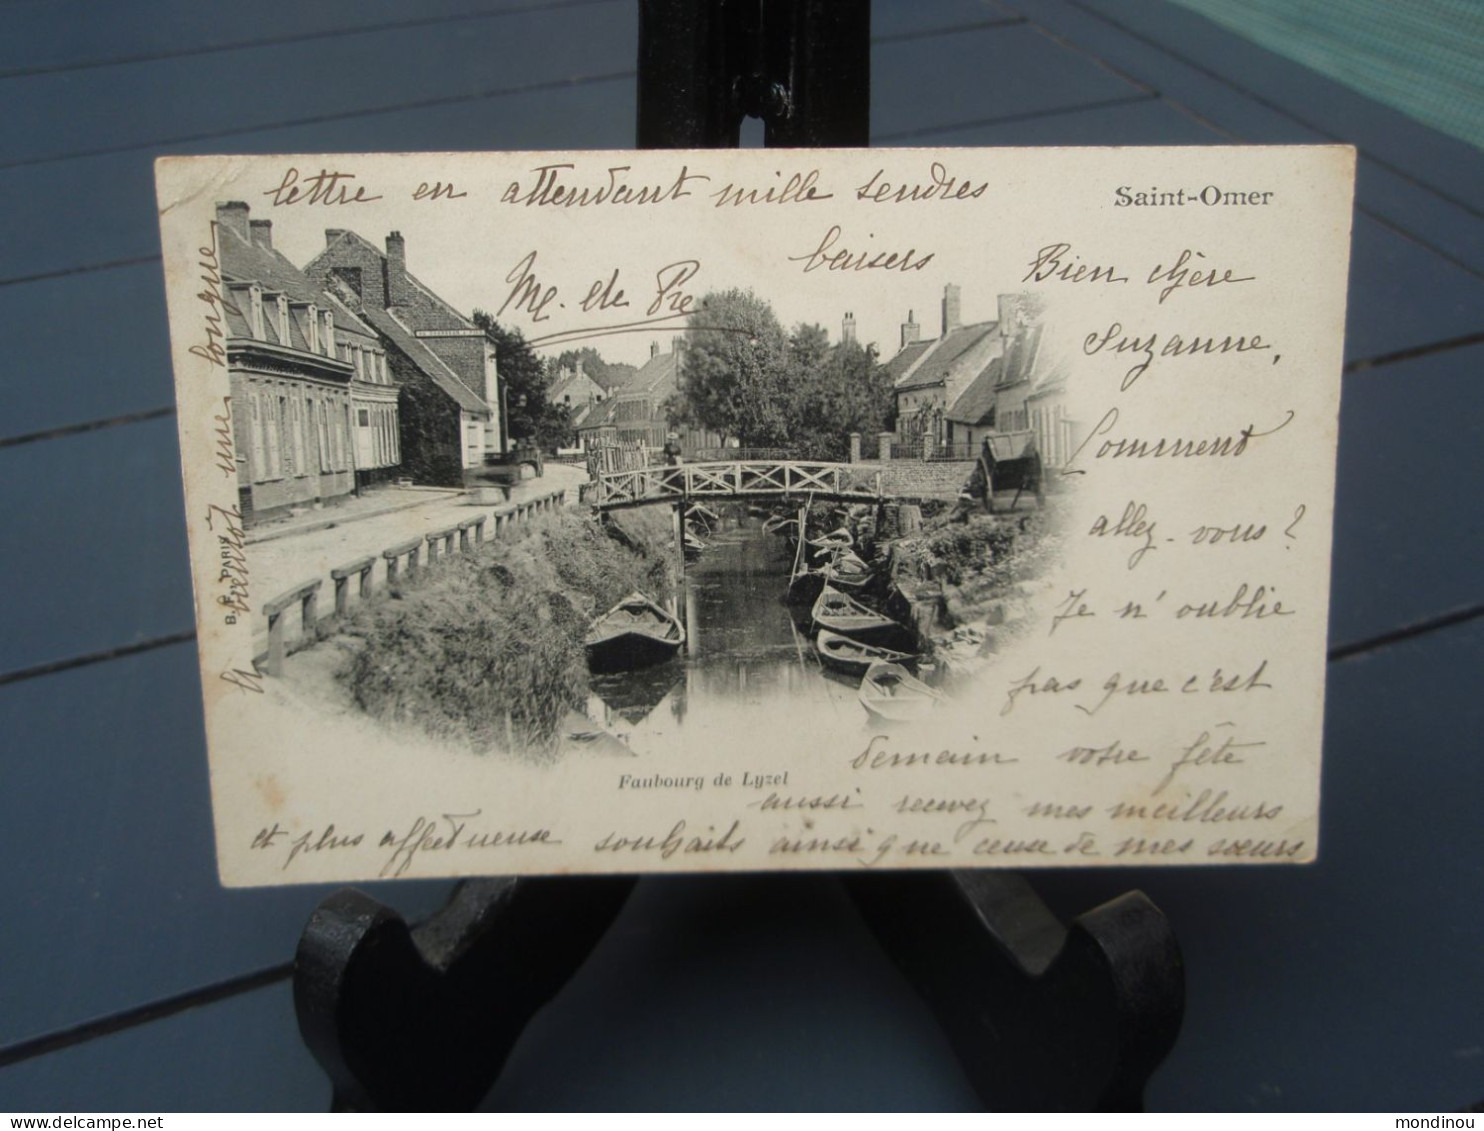 Saint-Omer
Bien chère
Suzanne,
Comment
allez-vous?
Je n'oublie
pas que c'est
demain votre fête
aussi recevez mes meilleurs
et plus affectueuse souhaits ainsi que ceuse de mes sœurs
à bientôt une longue
lettre en attendant mille tendres
baisers
M. de Pre
Faubourg de Lyzel
B. F. PARIS
delcampe.net
mondinou